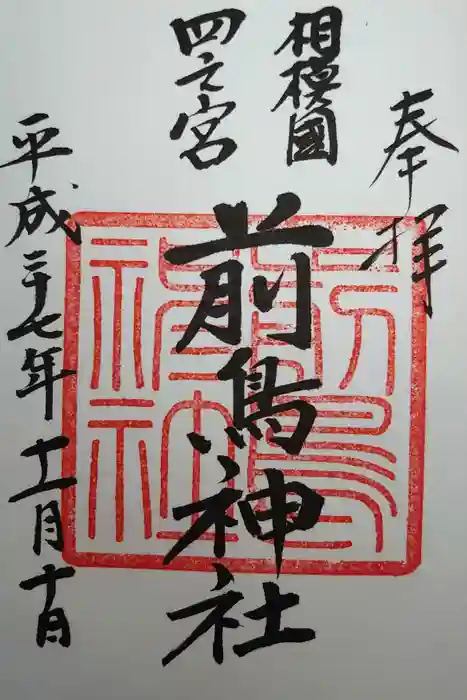 奉拝
相模國
四之宮
前鳥神社
平成二十七年十一月十日